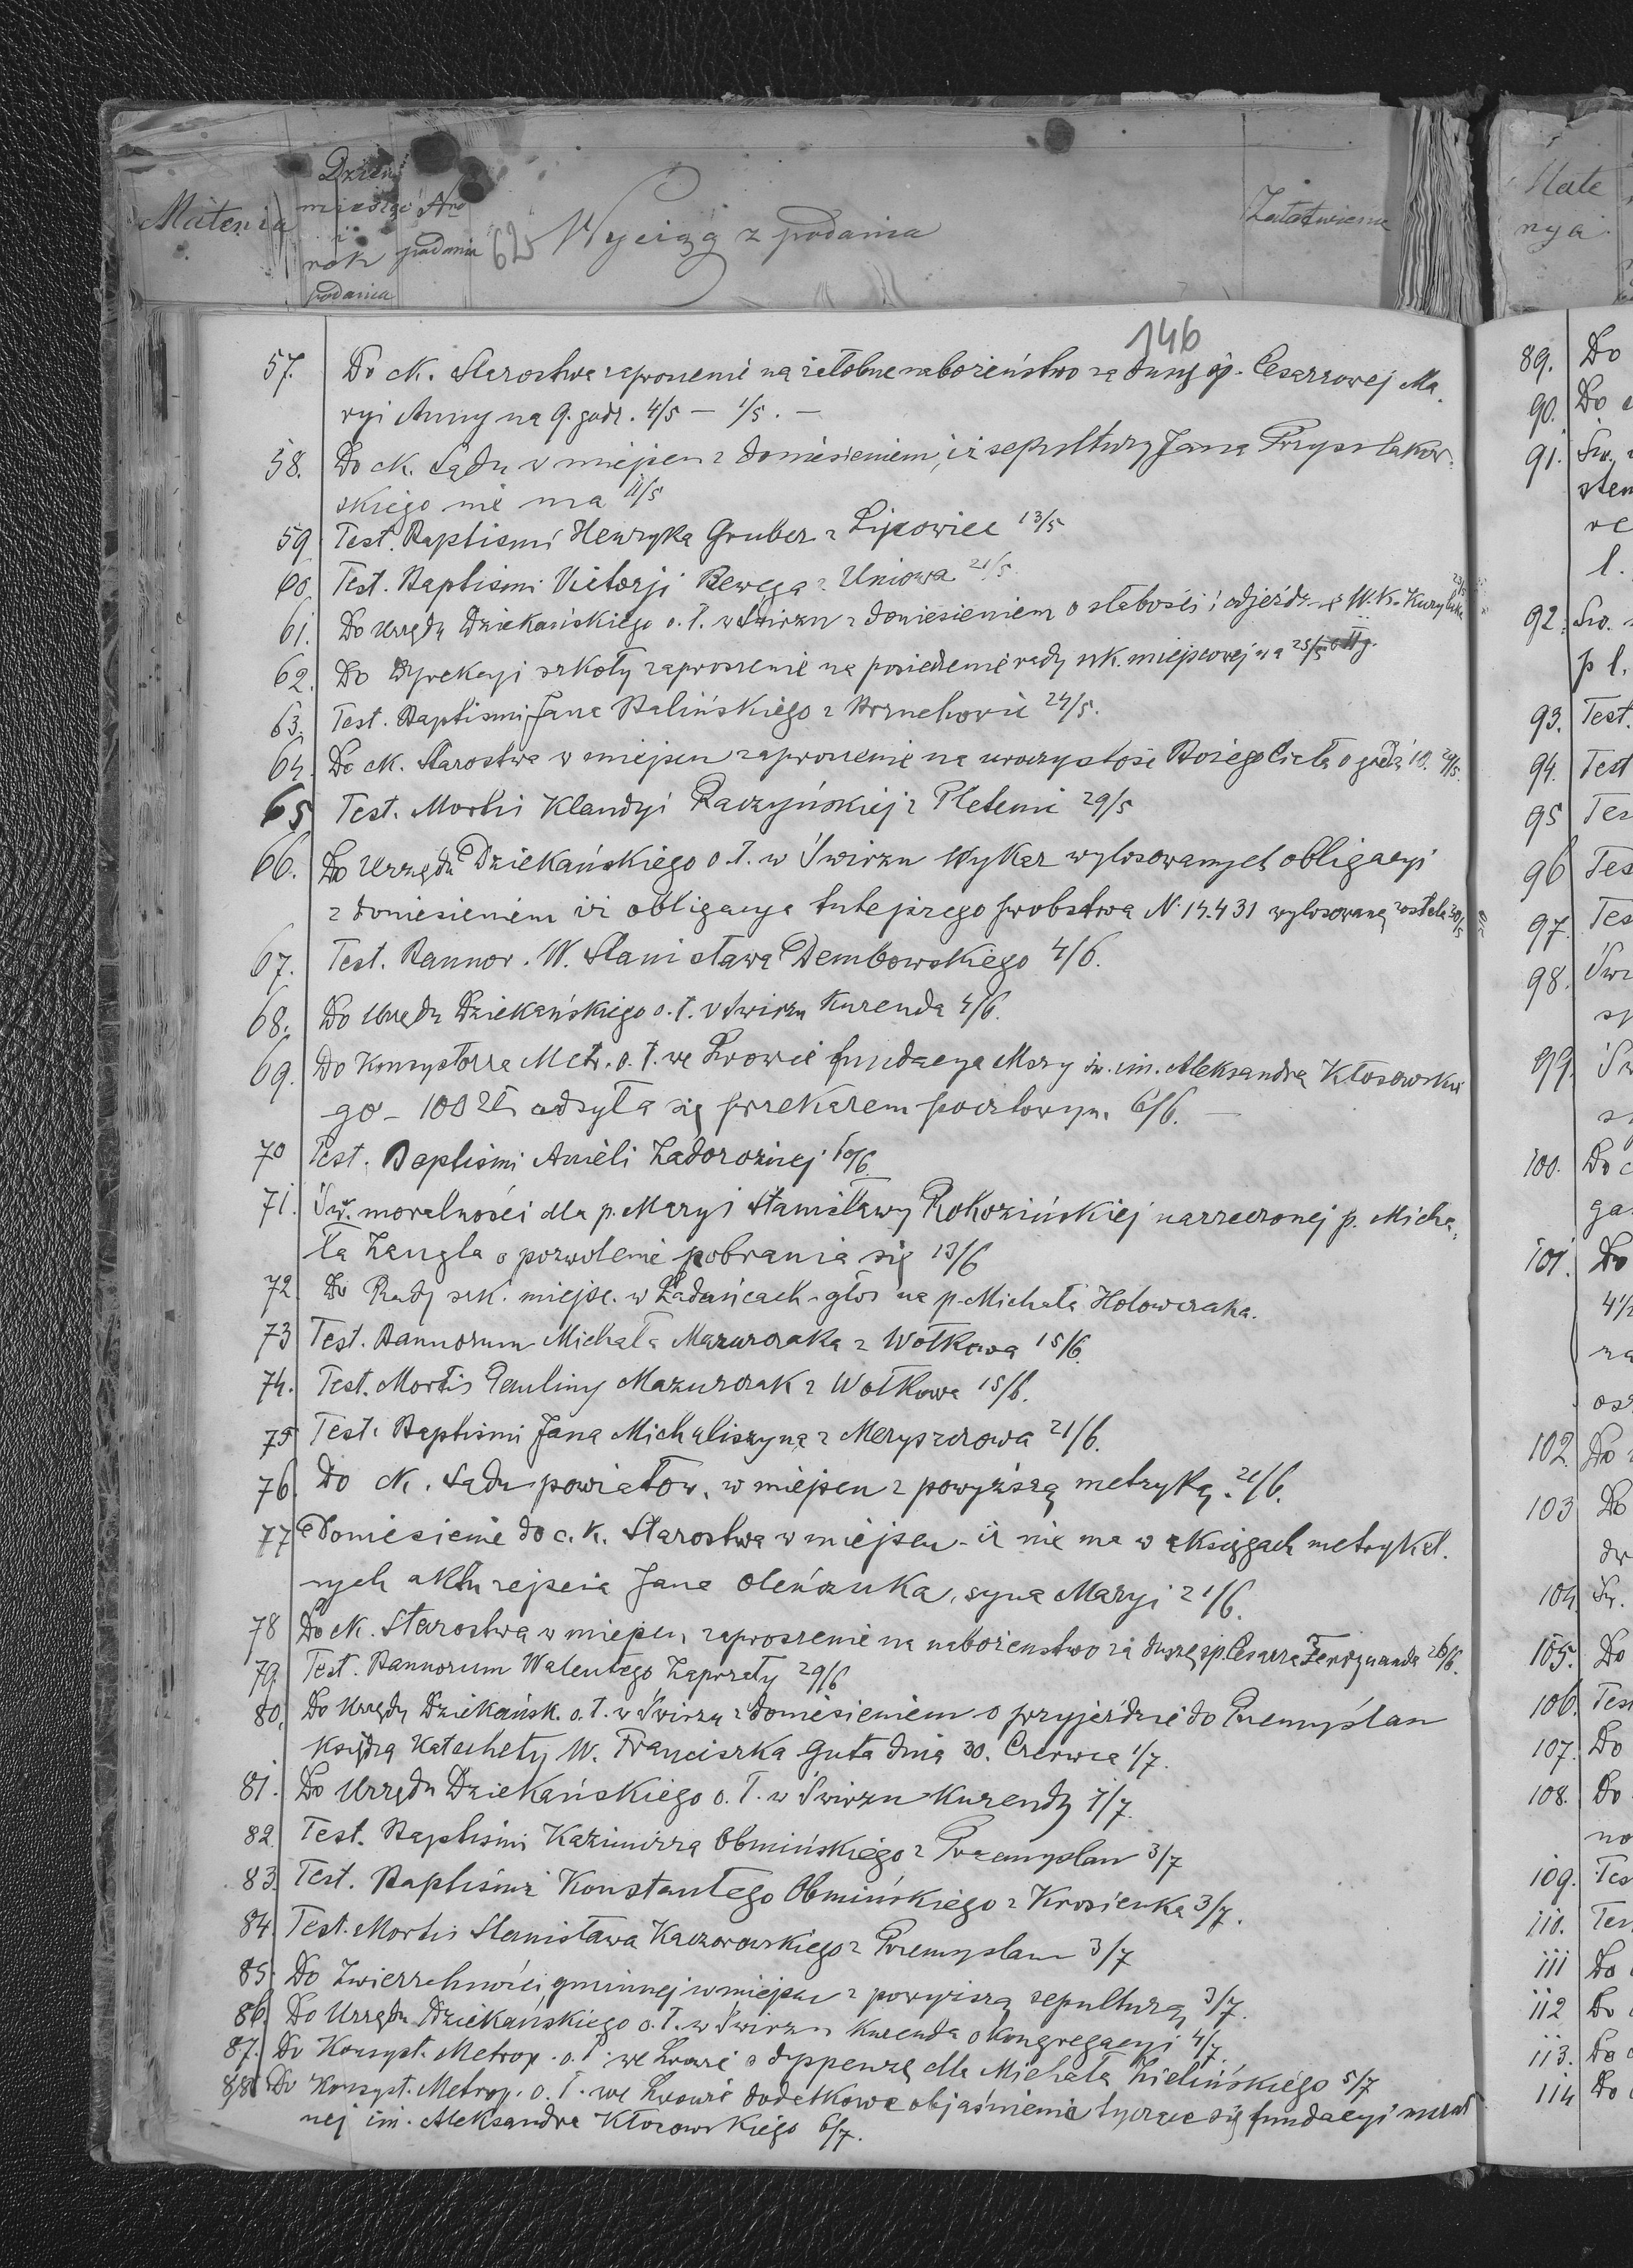 Materia
Dzień
miesiąc
i
rok
podania
Nro
podania
62
Wyciąg z podania
Załatwienie
146
57. Do ck. Starostwa zaproszenie na żałobne nabożeństwo za duszę śp. Cesarzowej Ma
ryi Anny na 9. godz. 4/5 — 1/5. —
58. Do ck. Sądu w miejscu z doniesieniem, iż sepultury Jana Przysłakow-
skiego nie ma 11/5
59 Test. Baptismi Henryka Gruber z Lipowiec 13/5
60 Test. Baptismi Victorji Bewega z Uniowa 21/5
61. Do Urzędu Dziekańskiego o. ł. w Świrzu z doniesieniem o słabości i W. K.
62. Do Dyrekcyi szkoły zaproszenie na posiedzenie rady szk. miejscowej na 25/5
63. Test. Baptismi Jana Balińskiego z Brzuchowic 24/5.
64. Do ck. Starostwa w miejscu zaproszenie na uroczystość Bożego Ciała o godz. 10. 29/5.
65 Test. Mortis Klaudyi Raczyńskiej z Pletenic 29/5
66. Do Urzędu Dziekańskiego o. ł. w Świrzu Wykaz wylosowanych obligacyi
z doniesieniem iż obligacya tutejszego probostwa N. 14.431 wylosowaną została 30/5
67. Test. Bannor. W. Stanisława Dembowskiego 4/6.
68. Do Urzędu Dziekańskiego o. ł. w Świrzu Kurenda 4/6.
69. Do Konsystorza Metr. o. ł. we Lwowie fundacya Mszy św. im. Aleksandra Kłosowskie
go — 100 zł odsyła się przekazem pocztowym 6/6. —
70 Test. Baptismi Anieli Zadorożnej 10/6.
71. Św. moralności dla p. Maryi Stanisławy Rokozińskiej narzeczonej p. Micha-
ła Zangla o pozwolenie pobrania się 13/6
72. Do Rady szk. miejsc. w Ładańcach głos na p. Michała Hołowczaka.
73 Test. Bannorum Michała Mazurczaka z Wołkowa 15/6.
74. Test. Mortis Pauliny Mazurczak z Wołkowa 15/6.
75 Test. Baptismi Jana Michaliszyna z Meryszczowa 21/6.
76. Do ck. Sądu powiatow. w miejscu z powyższą metryką. 21/6.
77 Doniesienie do c. k. Starostwa w miejscu iż nie ma w księgach metrykal.
nych aktu zejścia Jana Oleńczuka, syna Maryi 21/6.
78 Do ck. Starostwa w miejscu zaproszenie na nabożenstwo za duszę śp. Cesarza Ferdynanda 26/6.
79. Test. Bannorum Walentego Zaprzały 29/6
80. Do Urzędu Dziekańsk. o. ł. w Świrzu z doniesieniem o przyjeździe do Przemyślan
księdza Katechety W. Franciszka Guta dnia 30. Czerwca 1/7.
81. Do Urzędu Dziekańskiego o. ł. w Świrzu Kurendy 1/7.
82. Test. Baptismi Kazimirza Obmińskiego z Przemyślan 3/7
83. Test. Baptismi Konstantego Obmińskiego z Krosienka 3/7.
84. Test. Mortis Stanisława Kaczorowskiego z Przemyslan 3/7
85. Do Zwierzchności gminnej w miejscu z powyższą sepulturą 3/7.
86. Do Urzędu Dziekańskiego o. ł. w Świrzu Kurenda o Kongregacyi 4/7.
87. Do Konsyst. Metrop. o. ł. we Lwowie o dyspenzę dla Michała Zielińskiego 5/7
88 Do Konsyst. Metrop. o. ł. we Lwowie dodatkowe objaśnienie tyczące się fundacyi mszal
nej im. Aleksandra Kłosowskiego 6/7.
Mate
rya
89. Do
90. Do
91. Św.
92. Św.
p l.
93. Test.
94. Test
95 Tes
96 Tes
97. Tes
98. Świ
99. Św
100. Do c
ga
101. Do
4 1/2
za
102. Do
103 Do
104. Św.
105. Do
106. Test
107. Do
108. Do
no
109. Tes
110. Tes
111 Do
112 Do
113. Do
114 Do